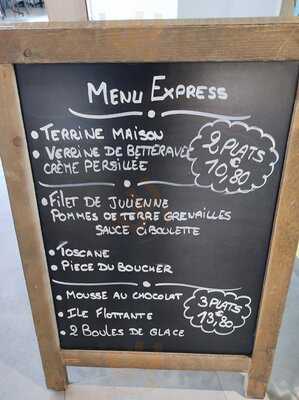 MENU EXPRESS
• TERRINE MAISON
• VERRINE DE BETTERAVE
CRÈME PERSILLÉE
2 PLATS
€
10,80
• FILET DE JULIENNE
POMMES DE TERRE GRENAILLES
SAUCE CIBOULETTE
• TOSCANE
• PIECE DU BOUCHER
• MOUSSE AU CHOCOLAT
• ILE FLOTTANTE
• 2 BOULES DE GLACE
3 PLATS
€
13,80